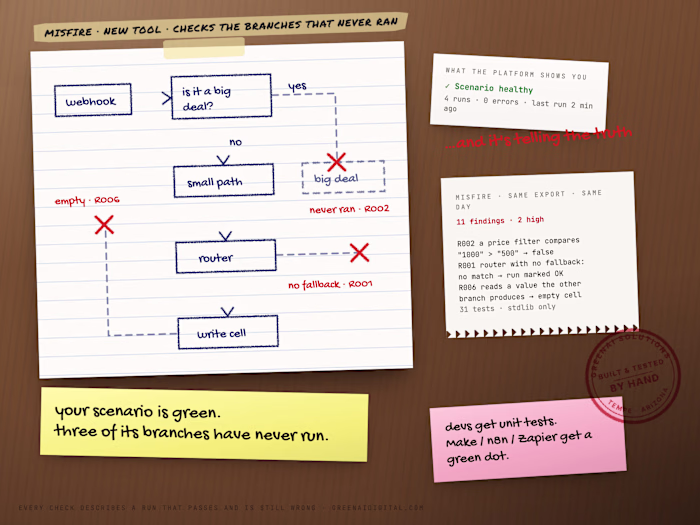 MISFIRE · NEW TOOL · CHECKS THE BRANCHES THAT NEVER RAN
webhook
is it a big
deal?
yes
no
small path
big deal
empty · R006
never ran · R002
router
no fallback · R001
write cell
WHAT THE PLATFORM SHOWS YOU
✓ Scenario healthy
4 runs · 0 errors · last run 2 min
ago
...and it's telling the truth
MISFIRE · SAME EXPORT · SAME
DAY
11 findings · 2 high
R002 a price filter compares
"1000" > "500" → false
R001 router with no fallback:
no match → run marked OK
R006 reads a value the other
branch produces → empty cell
31 tests · stdlib only
GREENAI SOLUTIONS
BUILT & TESTED
BY HAND
TEMPE · ARIZONA
your scenario is green.
three of its branches have never run.
devs get unit tests.
Make / n8n / Zapier get a
green dot.
EVERY CHECK DESCRIBES A RUN THAT PASSES AND IS STILL BROKE · GREENAIDIGITAL.COM